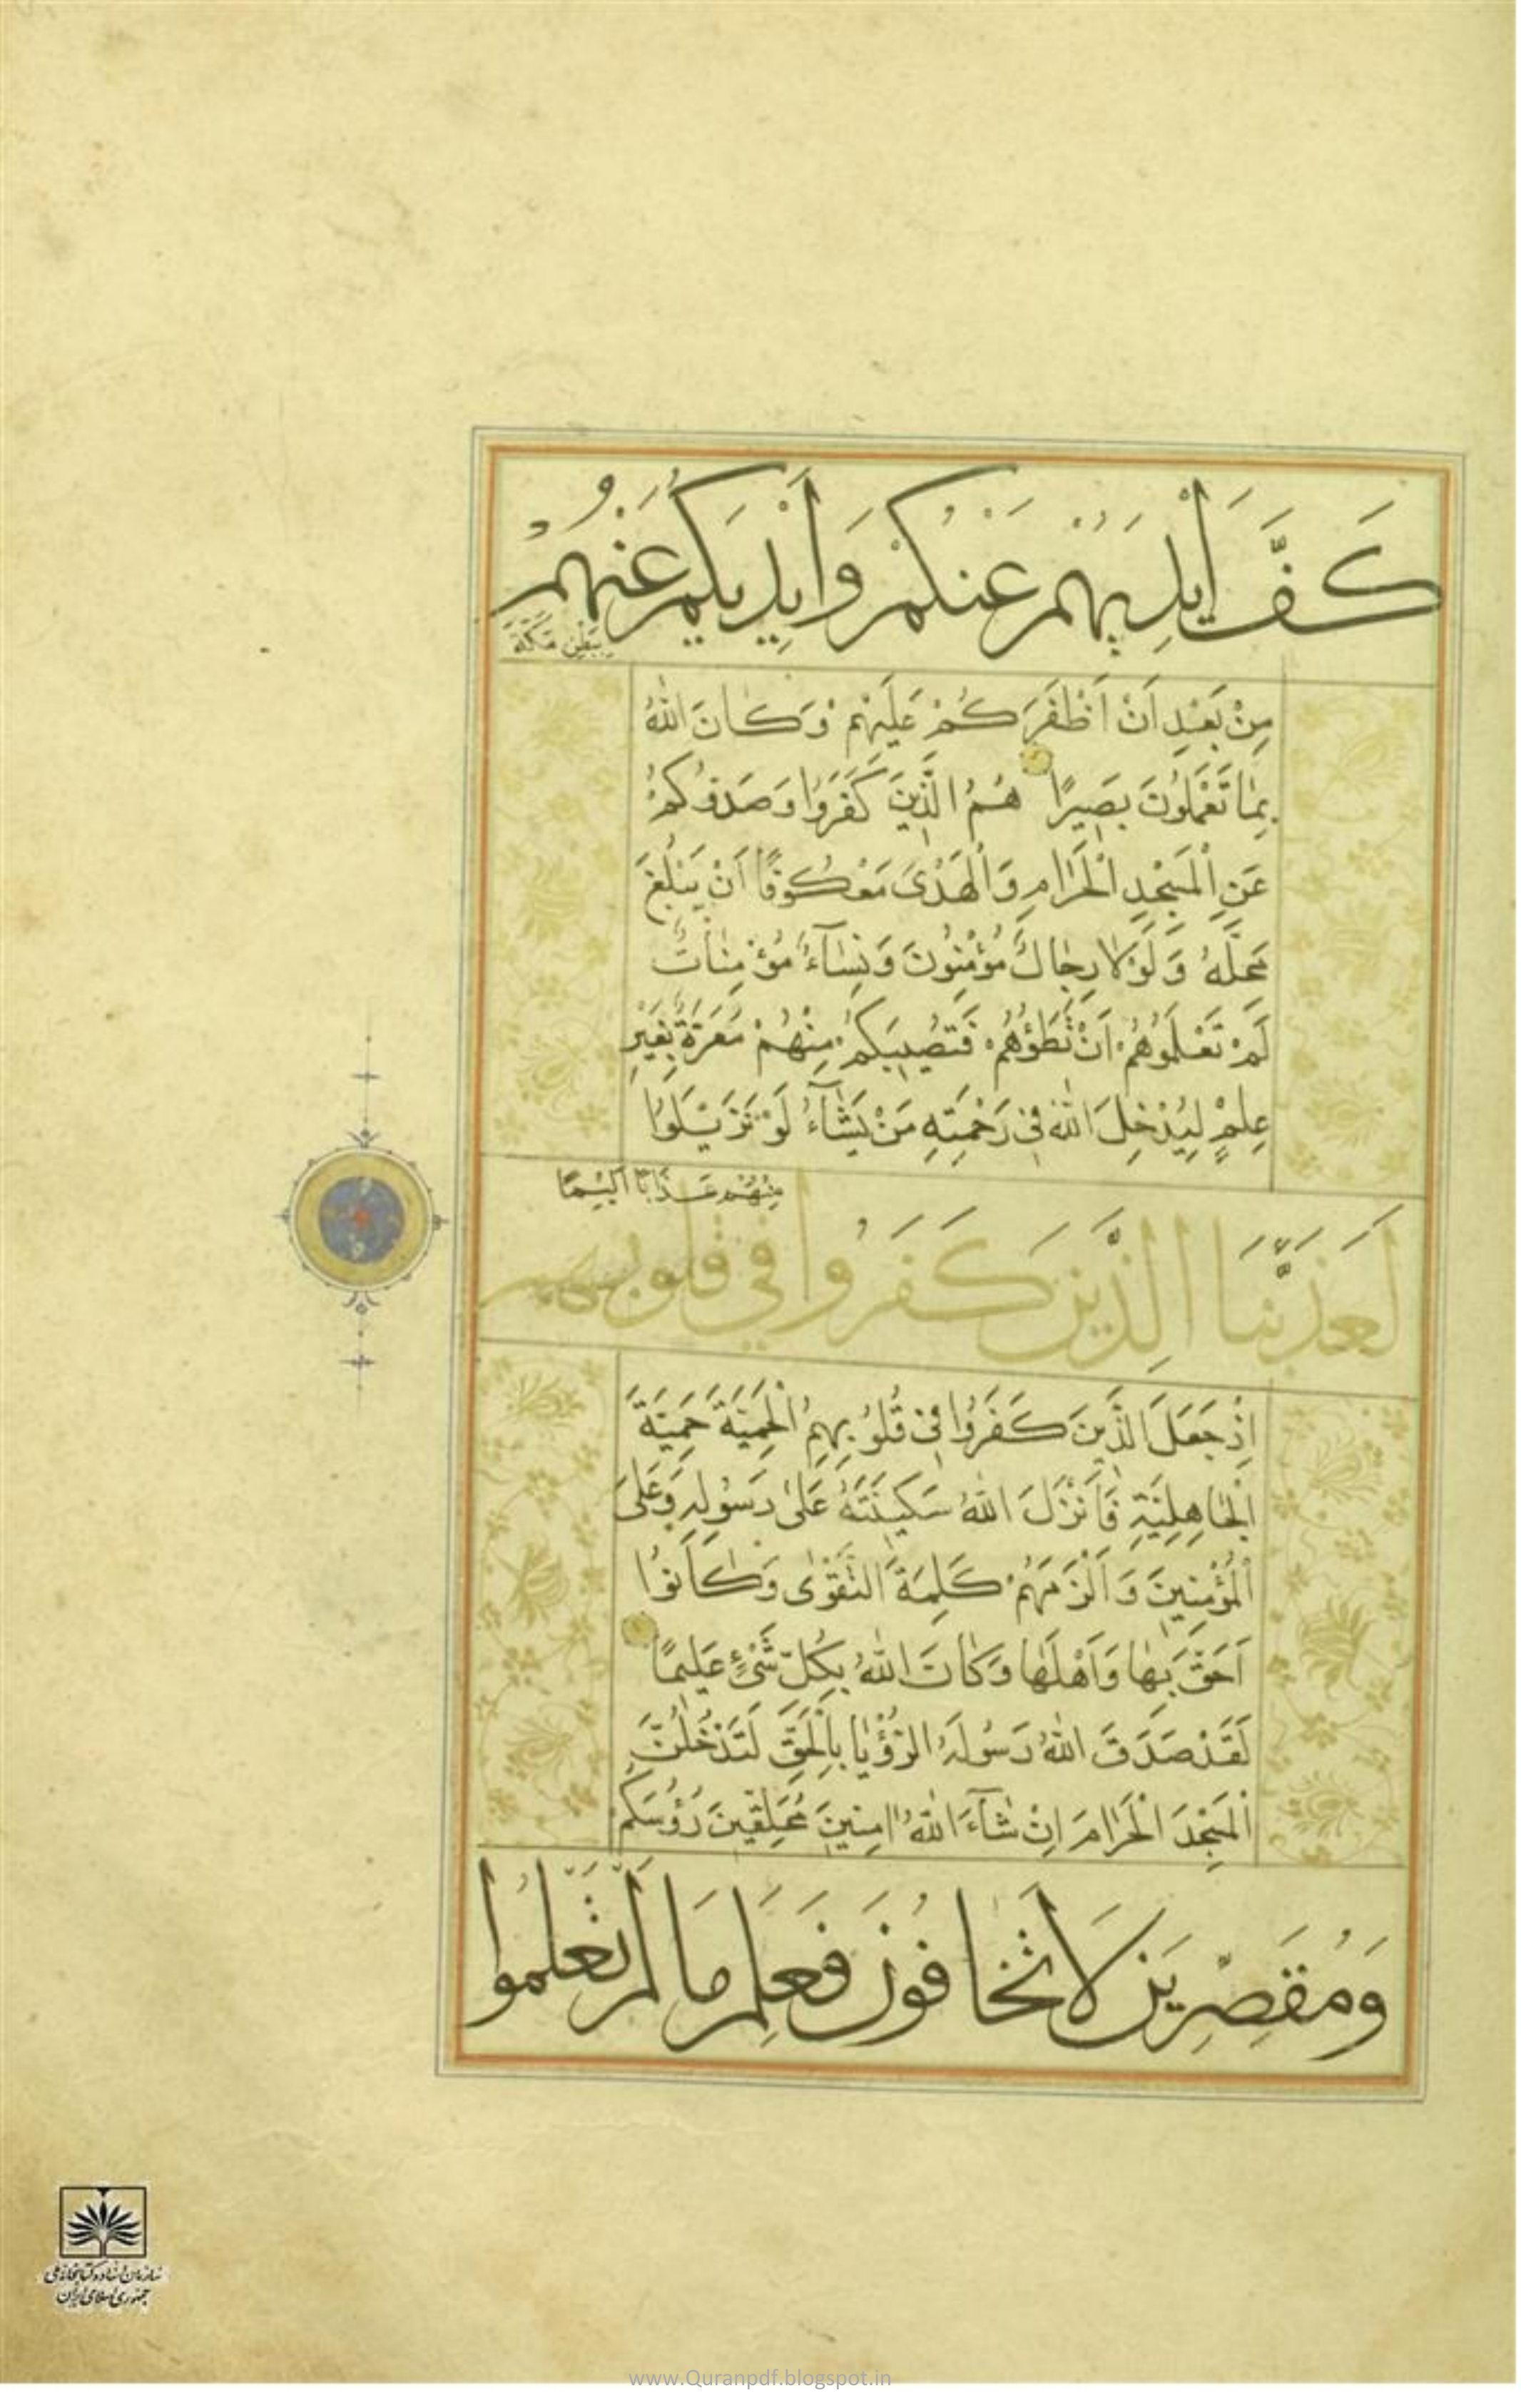 كَفَّ اَيْدِيَهُمْ عَنْكُمْ وَاَيْدِيَكُمْ عَنْهُمْ
بِبَطْنِ مَكَّةَ
مِنْ بَعْدِ اَنْ اَظْفَرَكُمْ عَلَيْهِمْ وَكَانَ اللّٰهُ
بِمَا تَعْمَلُونَ بَصِيرًا هُمُ الَّذِينَ كَفَرُوا وَصَدُّوكُمْ
عَنِ الْمَسْجِدِ الْحَرَامِ وَالْهَدْىَ مَعْكُوفًا اَنْ يَبْلُغَ
مَحِلَّهُ وَلَوْلَا رِجَالٌ مُؤْمِنُونَ وَنِسَآءٌ مُؤْمِنَاتٌ
لَمْ تَعْلَمُوهُمْ اَنْ تَطَؤُهُمْ فَتُصِيبَكُمْ مِنْهُمْ مَعَرَّةٌ بِغَيْرِ
عِلْمٍ لِيُدْخِلَ اللّٰهُ فِى رَحْمَتِهِ مَنْ يَشَآءُ لَوْ تَزَيَّلُوا
مِنْهُمْ عَذَابًا اَلِيمًا
لَعَذَّبْنَا الَّذِينَ كَفَرُوا فِي قلوبهم
اِذْ جَعَلَ الَّذِينَ كَفَرُوا فِى قُلُوبِهِمُ الْحَمِيَّةَ حَمِيَّةَ
الْجَاهِلِيَّةِ فَاَنْزَلَ اللّٰهُ سَكِينَتَهُ عَلٰى رَسُولِهِ وَعَلَى
الْمُؤْمِنِينَ وَاَلْزَمَهُمْ كَلِمَةَ التَّقْوٰى وَكَانُوا
اَحَقَّ بِهَا وَاَهْلَهَا وَكَانَ اللّٰهُ بِكُلِّ شَىْءٍ عَلِيمًا
لَقَدْ صَدَقَ اللّٰهُ رَسُولَهُ الرُّؤْيَا بِالْحَقِّ لَتَدْخُلُنَّ
الْمَسْجِدَ الْحَرَامَ اِنْ شَآءَ اللّٰهُ اٰمِنِينَ مُحَلِّقِينَ رُؤُسَكُمْ
وَمُقَصِّرِينَ لَا تَخَافُونَ فَعَلِمَ مَا لَمْ تَعْلَمُوا
سازمان اسناد و کتابخانه ملی
جمهوری اسلامی ایران
www.Quranpdf.blogspot.in